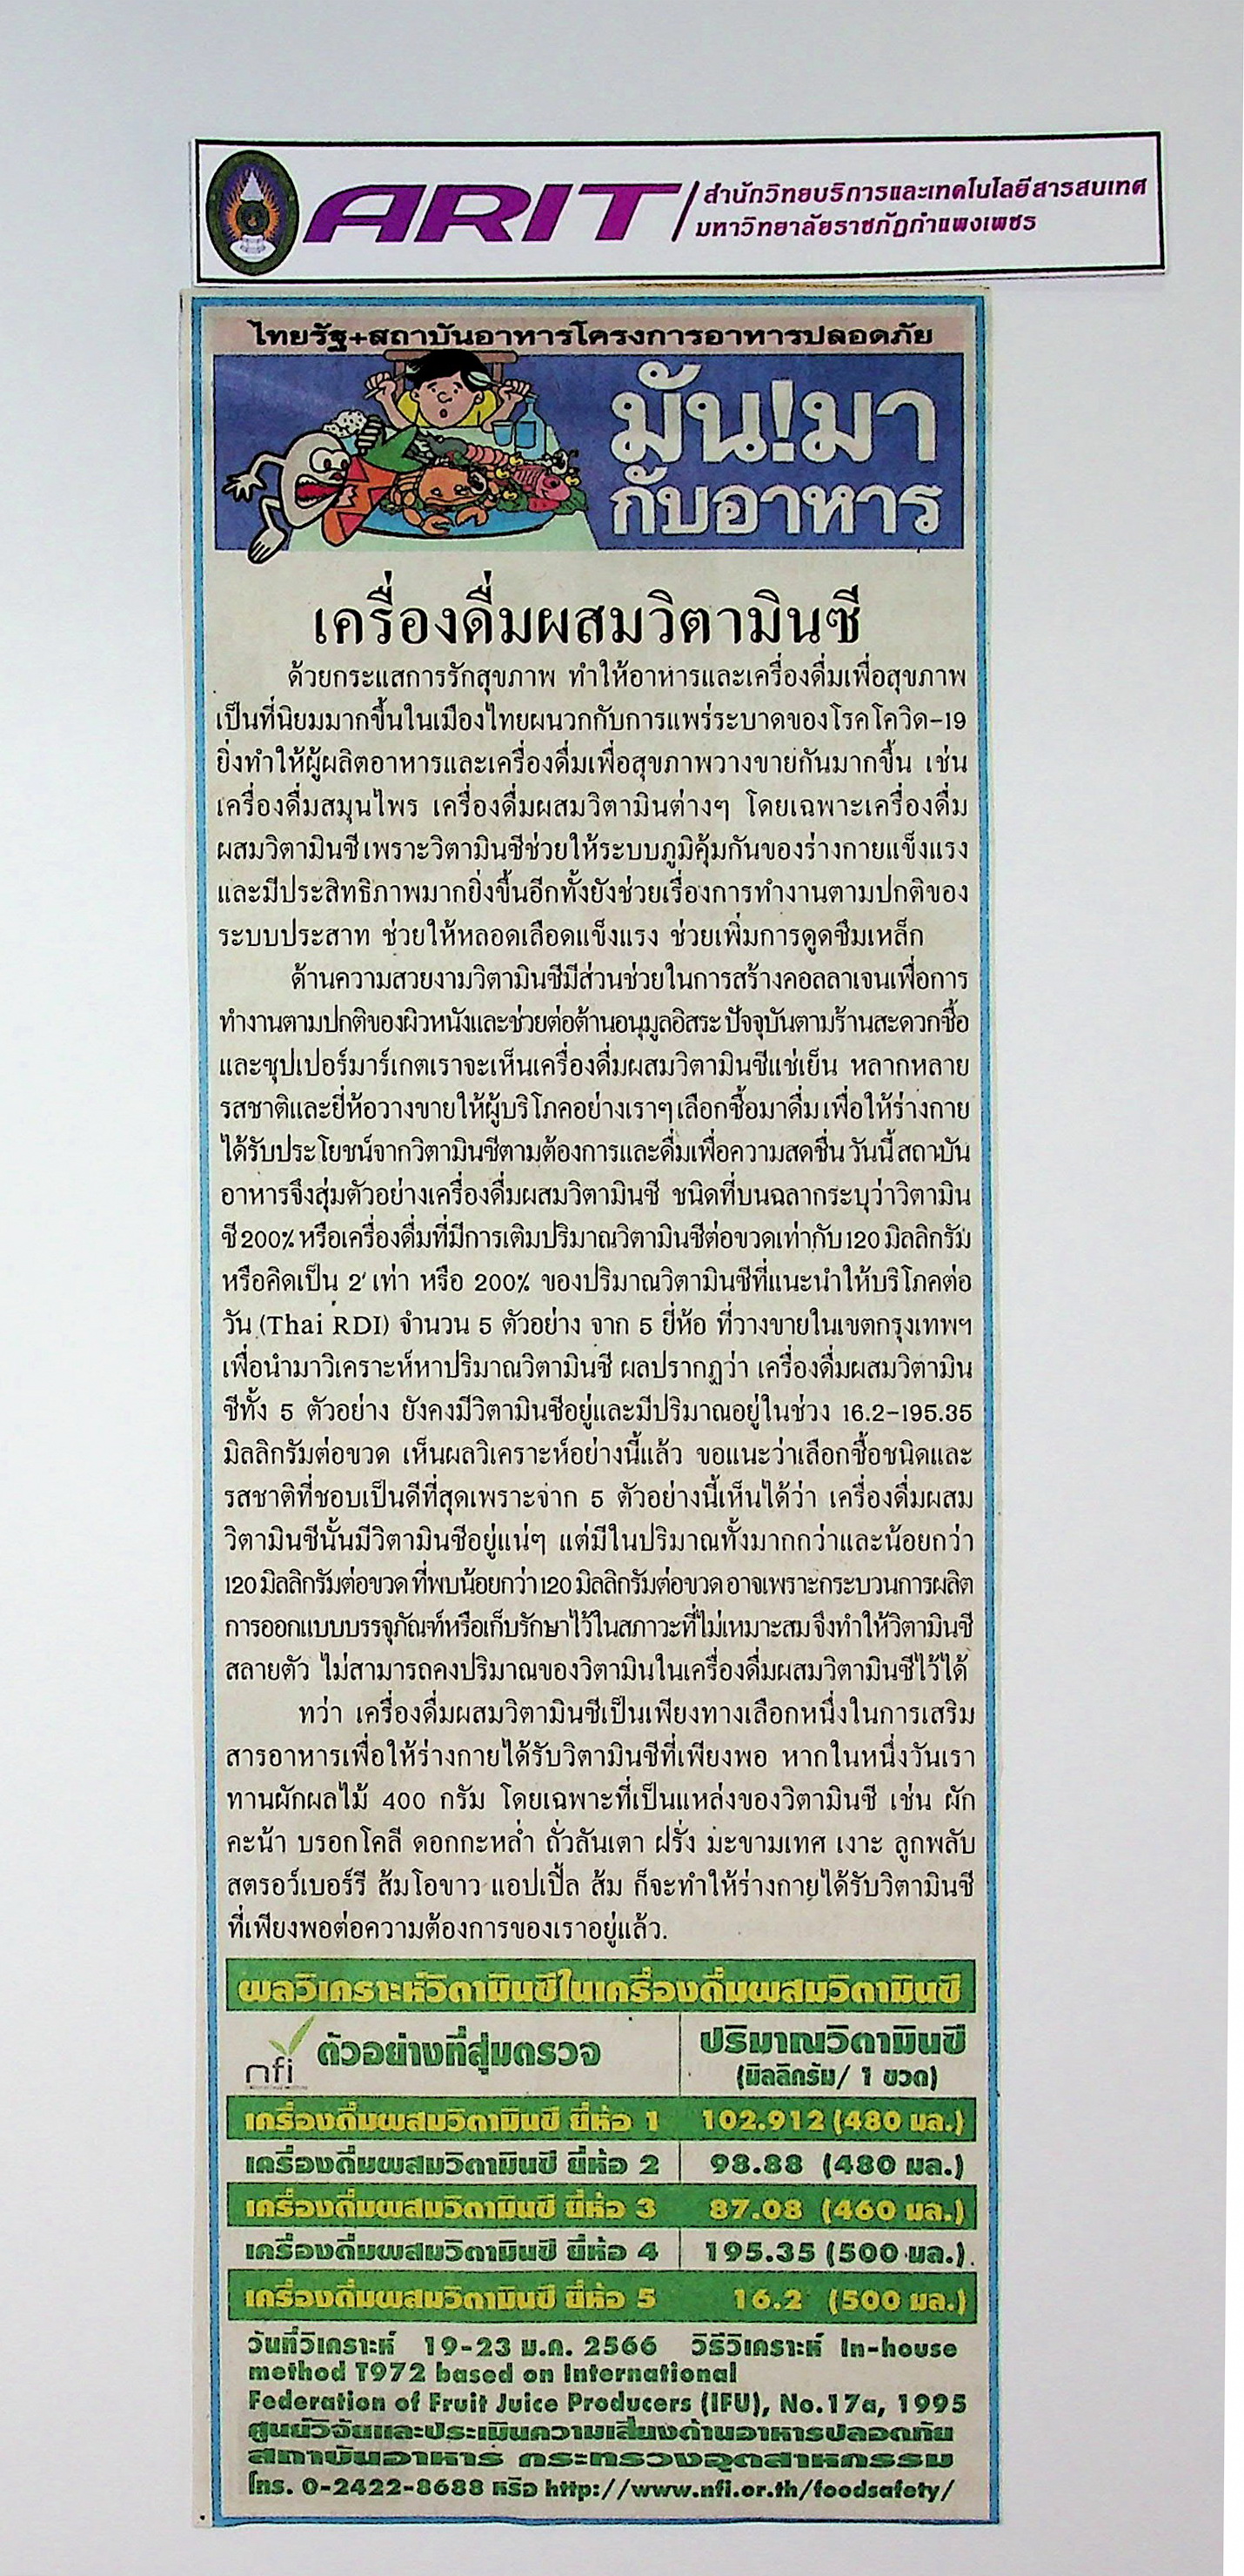 ARIT
สำนักวิทยบริการและเทคโนโลยีสารสนเทศ
มหาวิทยาลัยราชภัฏกำแพงเพชร
ไทยรัฐ+สถาบันอาหารโครงการอาหารปลอดภัย
มัน!มา
กับอาหาร
เครื่องดื่มผสมวิตามินซี
ด้วยกระแสการรักสุขภาพ ทำให้อาหารและเครื่องดื่มเพื่อสุขภาพ
เป็นที่นิยมมากขึ้นในเมืองไทยผนวกกับการแพร่ระบาดของโรคโควิด-19
ยิ่งทำให้ผู้ผลิตอาหารและเครื่องดื่มเพื่อสุขภาพวางขายกันมากขึ้น เช่น
เครื่องดื่มสมุนไพร เครื่องดื่มผสมวิตามินต่างๆ โดยเฉพาะเครื่องดื่ม
ผสมวิตามินซีเพราะวิตามินซีช่วยให้ระบบภูมิคุ้มกันของร่างกายแข็งแรง
และมีประสิทธิภาพมากยิ่งขึ้นอีกทั้งยังช่วยเรื่องการทำงานตามปกติของ
ระบบประสาท ช่วยให้หลอดเลือดแข็งแรง ช่วยเพิ่มการดูดซึมเหล็ก
ด้านความสวยงามวิตามินซีมีส่วนช่วยในการสร้างคอลลาเจนเพื่อการ
ทำงานตามปกติของผิวหนังและช่วยต่อต้านอนุมูลอิสระ ปัจจุบันตามร้านสะดวกซื้อ
และซุปเปอร์มาร์เกตเราจะเห็นเครื่องดื่มผสมวิตามินซีแช่เย็น หลากหลาย
รสชาติและยี่ห้อวางขายให้ผู้บริโภคอย่างเราๆ เลือกซื้อมาดื่ม เพื่อให้ร่างกาย
ได้รับประโยชน์จากวิตามินซีตามต้องการและดื่มเพื่อความสดชื่น วันนี้ สถาบัน
อาหารจึงสุ่มตัวอย่างเครื่องดื่มผสมวิตามินซี ชนิดที่บนฉลากระบุว่าวิตามิน
ซี 200% หรือเครื่องดื่มที่มีการเติมปริมาณวิตามินซีต่อขวดเท่ากับ 120 มิลลิกรัม
หรือคิดเป็น 2 เท่า หรือ 200% ของปริมาณวิตามินซีที่แนะนำให้บริโภคต่อ
วัน (Thai RDI) จำนวน 5 ตัวอย่าง จาก 5 ยี่ห้อ ที่วางขายในเขตกรุงเทพฯ
เพื่อนำมาวิเคราะห์หาปริมาณวิตามินซี ผลปรากฏว่า เครื่องดื่มผสมวิตามิน
ซีทั้ง 5 ตัวอย่าง ยังคงมีวิตามินซีอยู่และมีปริมาณอยู่ในช่วง 16.2-195.35
มิลลิกรัมต่อขวด เห็นผลวิเคราะห์อย่างนี้แล้ว ขอแนะว่าเลือกซื้อชนิดและ
รสชาติที่ชอบเป็นดีที่สุดเพราะจาก 5 ตัวอย่างนี้เห็นได้ว่า เครื่องดื่มผสม
วิตามินซีนั้นมีวิตามินซีอยู่แน่ๆ แต่มีในปริมาณทั้งมากกว่าและน้อยกว่า
120 มิลลิกรัมต่อขวด ที่พบน้อยกว่า 120 มิลลิกรัมต่อขวด อาจเพราะกระบวนการผลิต
การออกแบบบรรจุภัณฑ์หรือเก็บรักษาไว้ในสภาวะที่ไม่เหมาะสม จึงทำให้วิตามินซี
สลายตัว ไม่สามารถคงปริมาณของวิตามินในเครื่องดื่มผสมวิตามินซีไว้ได้
ทว่า เครื่องดื่มผสมวิตามินซีเป็นเพียงทางเลือกหนึ่งในการเสริม
สารอาหารเพื่อให้ร่างกายได้รับวิตามินซีที่เพียงพอ หากในหนึ่งวันเรา
ทานผักผลไม้ 400 กรัม โดยเฉพาะที่เป็นแหล่งของวิตามินซี เช่น ผัก
คะน้า บรอกโคลี ดอกกะหล่ำ ถั่วลันเตา ฝรั่ง มะขามเทศ เงาะ ลูกพลับ
สตรอว์เบอร์รี ส้มโอขาว แอปเปิ้ล ส้ม ก็จะทำให้ร่างกายได้รับวิตามินซี
ที่เพียงพอต่อความต้องการของเราอยู่แล้ว.
ผลวิเคราะห์วิตามินซีในเครื่องดื่มผสมวิตามินซี
nfi ตัวอย่างที่สุ่มตรวจ ปริมาณวิตามินซี
(มิลลิกรัม/ 1 ขวด)
เครื่องดื่มผสมวิตามินซี ยี่ห้อ 1 102.912 (480 มล.)
เครื่องดื่มผสมวิตามินซี ยี่ห้อ 2 98.88 (480 มล.)
เครื่องดื่มผสมวิตามินซี ยี่ห้อ 3 87.08 (460 มล.)
เครื่องดื่มผสมวิตามินซี ยี่ห้อ 4 195.35 (500 มล.)
เครื่องดื่มผสมวิตามินซี ยี่ห้อ 5 16.2 (500 มล.)
วันที่วิเคราะห์ 19-23 ม.ค. 2566 วิธีวิเคราะห์ In-house
method T972 based on International
Federation of Fruit Juice Producers (IFU), No.17a, 1995
ศูนย์วิจัยและประเมินความเสี่ยงด้านอาหารปลอดภัย
สถาบันอาหาร กระทรวงอุตสาหกรรม
โทร. 0-2422-8688 หรือ http://www.nfi.or.th/foodsafety/